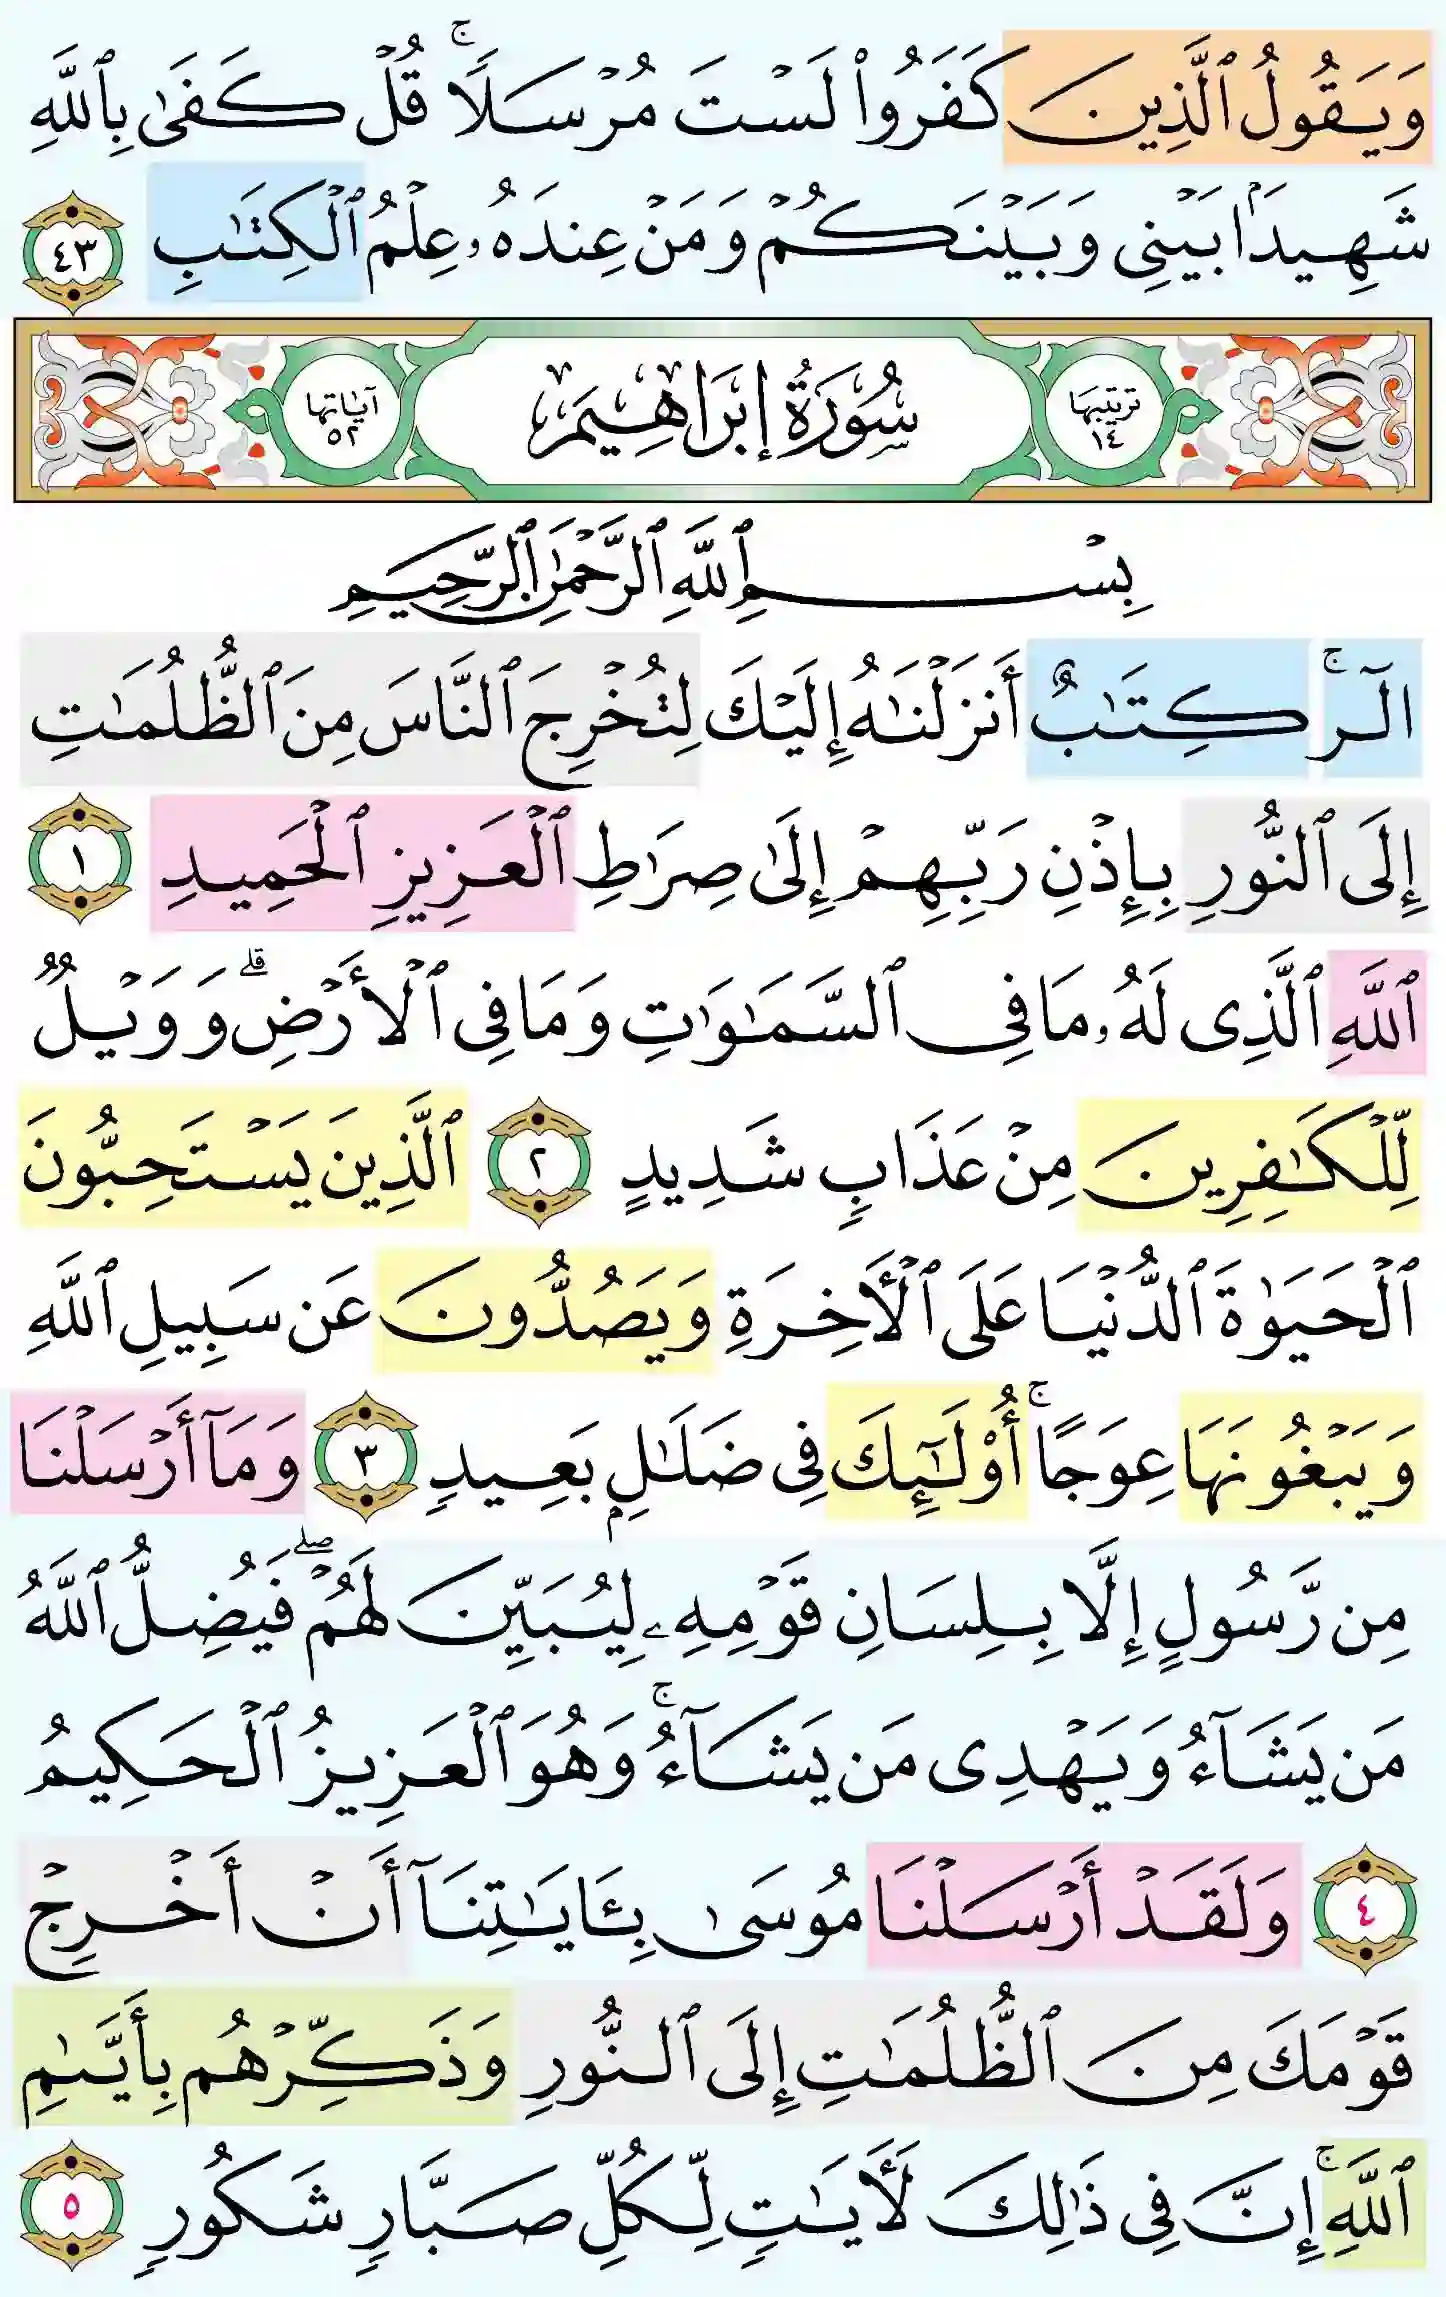 وَيَقُولُ ٱلَّذِينَ كَفَرُوا۟ لَسْتَ مُرْسَلًا ۚ قُلْ كَفَىٰ بِٱللَّهِ
شَهِيدًۢا بَيْنِى وَبَيْنَكُمْ وَمَنْ عِندَهُۥ عِلْمُ ٱلْكِتَـٰبِ ٤٣
ترتيبها ١٤ سُورَةُ إِبْرَاهِيمَ آياتها ٥٢
بِسْمِ ٱللَّهِ ٱلرَّحْمَـٰنِ ٱلرَّحِيمِ
الٓر ۚ كِتَـٰبٌ أَنزَلْنَـٰهُ إِلَيْكَ لِتُخْرِجَ ٱلنَّاسَ مِنَ ٱلظُّلُمَـٰتِ
إِلَى ٱلنُّورِ بِإِذْنِ رَبِّهِمْ إِلَىٰ صِرَٰطِ ٱلْعَزِيزِ ٱلْحَمِيدِ ١
ٱللَّهِ ٱلَّذِى لَهُۥ مَا فِى ٱلسَّمَـٰوَٰتِ وَمَا فِى ٱلْأَرْضِ ۗ وَوَيْلٌ
لِّلْكَـٰفِرِينَ مِنْ عَذَابٍ شَدِيدٍ ٢ ٱلَّذِينَ يَسْتَحِبُّونَ
ٱلْحَيَوٰةَ ٱلدُّنْيَا عَلَى ٱلْـَٔاخِرَةِ وَيَصُدُّونَ عَن سَبِيلِ ٱللَّهِ
وَيَبْغُونَهَا عِوَجًا ۚ أُو۟لَـٰٓئِكَ فِى ضَلَـٰلٍۭ بَعِيدٍ ٣ وَمَآ أَرْسَلْنَا
مِن رَّسُولٍ إِلَّا بِلِسَانِ قَوْمِهِۦ لِيُبَيِّنَ لَهُمْ ۖ فَيُضِلُّ ٱللَّهُ
مَن يَشَآءُ وَيَهْدِى مَن يَشَآءُ ۚ وَهُوَ ٱلْعَزِيزُ ٱلْحَكِيمُ
٤ وَلَقَدْ أَرْسَلْنَا مُوسَىٰ بِـَٔايَـٰتِنَآ أَنْ أَخْرِجْ
قَوْمَكَ مِنَ ٱلظُّلُمَـٰتِ إِلَى ٱلنُّورِ وَذَكِّرْهُم بِأَيَّىٰمِ
ٱللَّهِ ۚ إِنَّ فِى ذَٰلِكَ لَـَٔايَـٰتٍ لِّكُلِّ صَبَّارٍ شَكُورٍ ٥